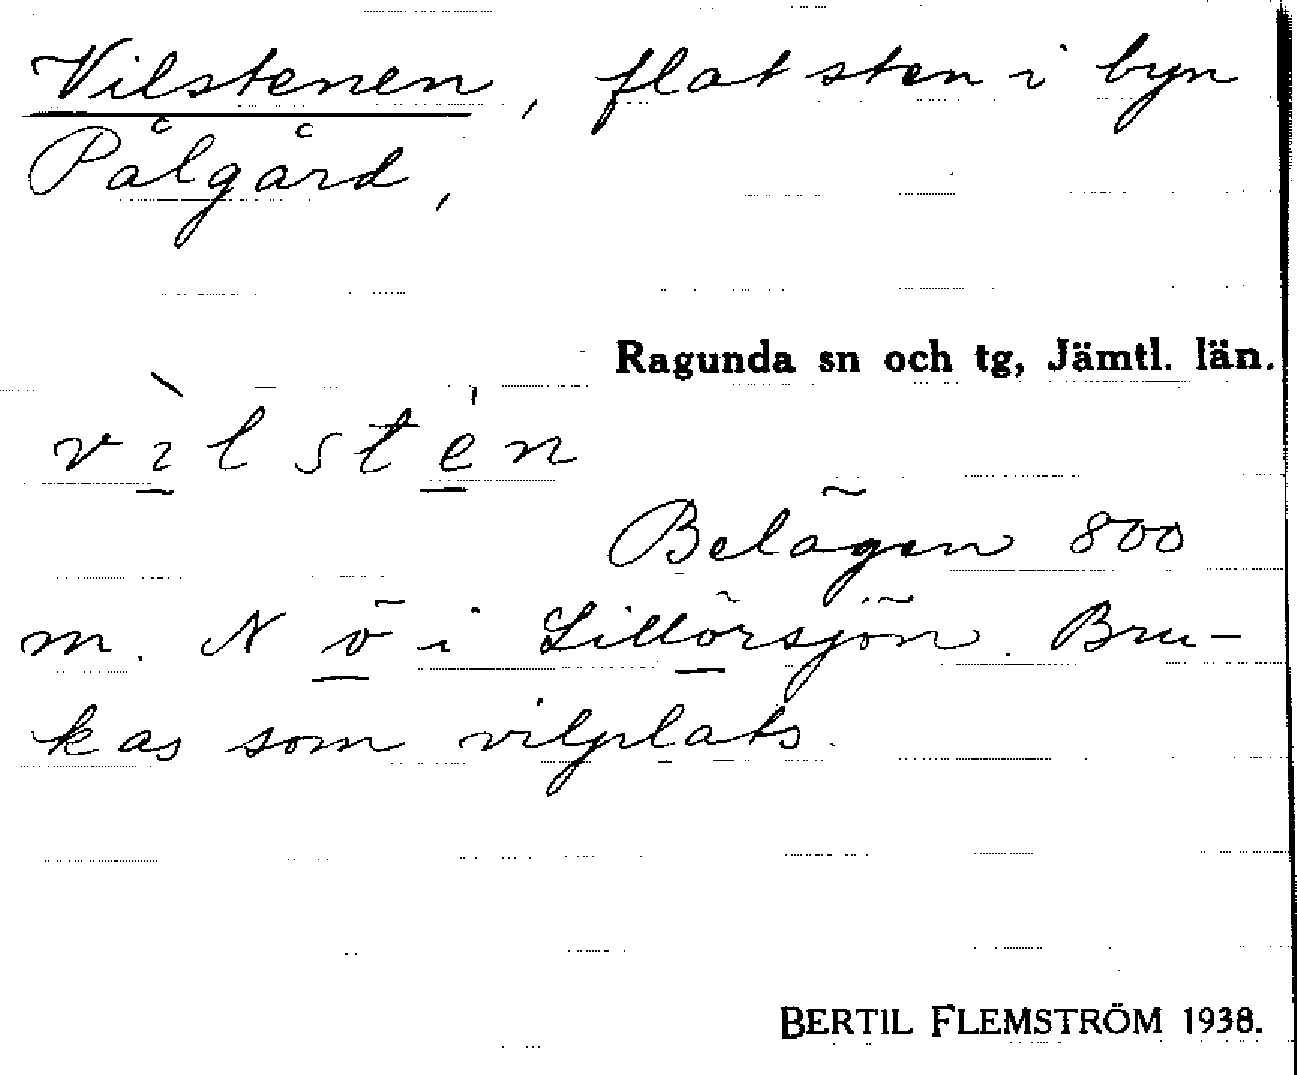 Vilstenen, flat sten i byn
Pålgård,
Ragunda sn och tg, Jämtl. län.
vìlstén
Belägen 800
m. N ö i Lillörsjön. Bru-
kas som vilplats.
BERTIL FLEMSTRÖM 1938.